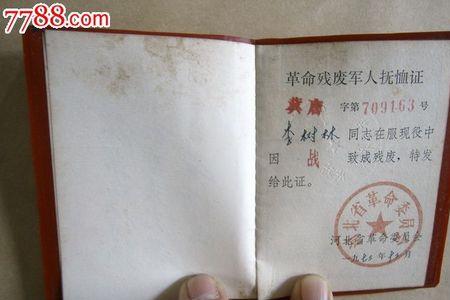 7788.com
革命残废军人抚恤证
冀唐 字第709163号
李树林 同志在服现役中
因 战 致成残废，特发
给此证。
河北省革命委员会
河北省革命委员会